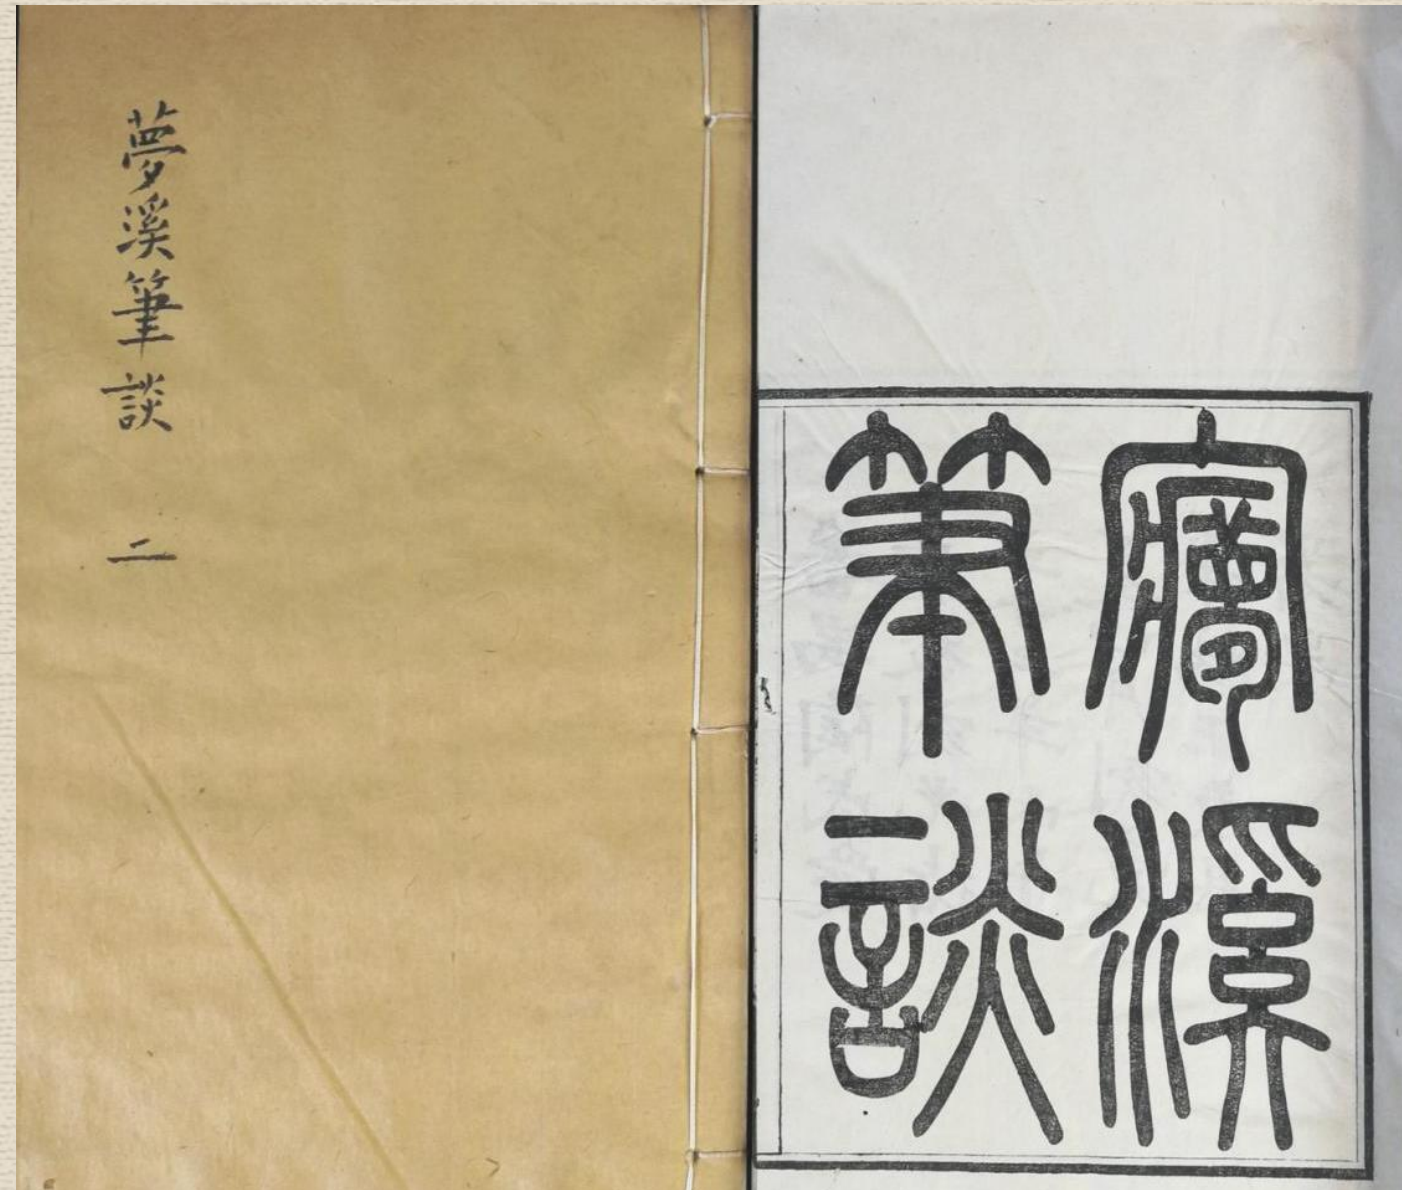 夢溪筆談 二
㝱溪
筆談